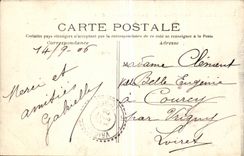 CARTE POSTALE
Certains pays étrangers n'acceptent pas la correspondance de ce côté se renseigner à la Poste
Correspondance
Adresse
14/9-06
Merci et
amitiés
Gabrielle
Madame Clément
Belle Eugénie
à Courcy
par Vrigny
Loiret